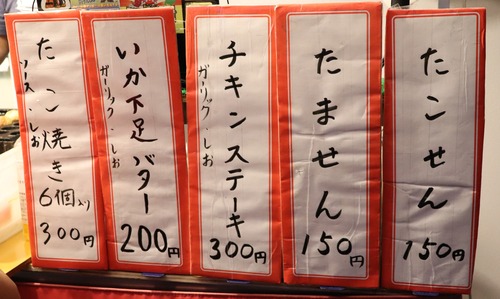 たこせん
150円
たません
150円
チキンステーキ
ガーリック・しお
300円
いか下足バター
ガーリック・しお
200円
たこ焼き
6個入り
ソース・しお
300円